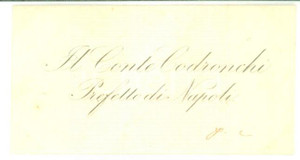 Il Conte Codronchi
Prefetto di Napoli